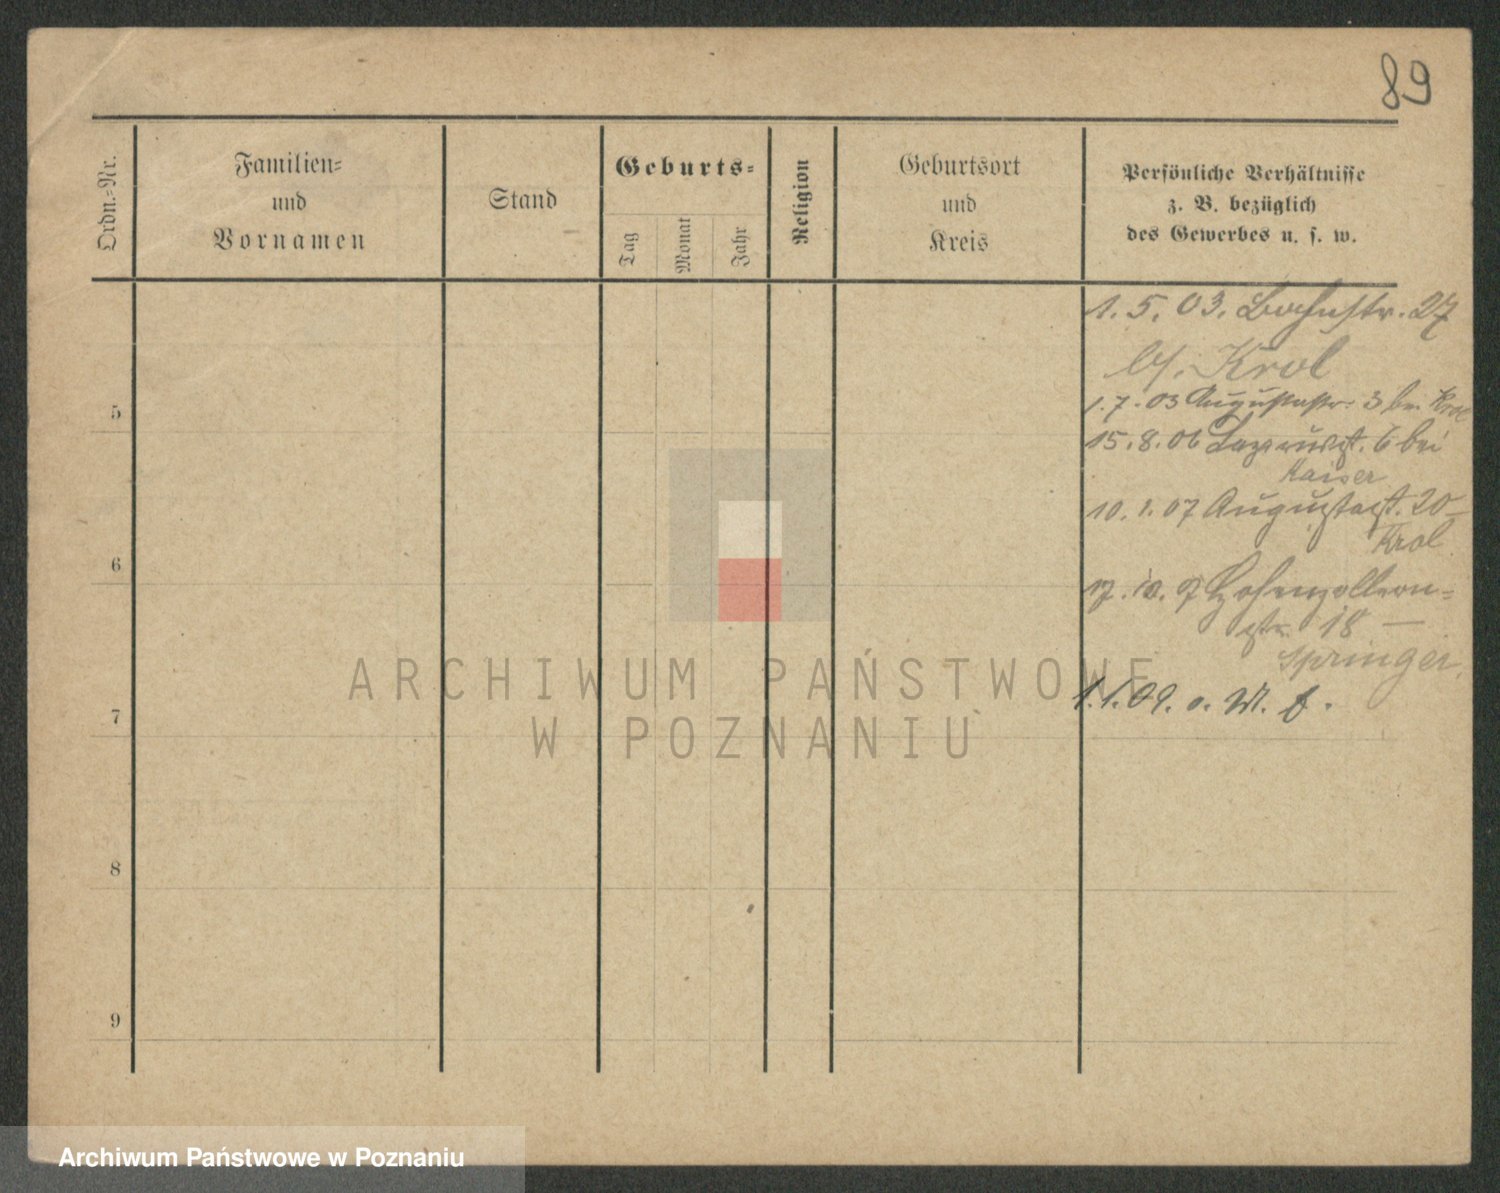 89
Ordn.-Nr.
Familien-
und
Vornamen
Stand
Geburts-
Tag
Monat
Jahr
Religion
Geburtsort
und
Kreis
Persönliche Verhältnisse
z. B. bezüglich
des Gewerbes u. s. w.
1. 5. 03. Bahnstr. 27
b/. Krol
5
1. 7. 03 Augustastr. 3 bei Krol
15. 8. 06 Lazarusst. 6 bei
Kaiser
10. 1. 07 Augustast. 20 –
Krol
6
17. 10. 7 Hohenzollern-
str. 18 –
Springer
7
1. 1. 09. o. W. f.
8
9
ARCHIWUM PAŃSTWOWE
W POZNANIU
Archiwum Państwowe w Poznaniu